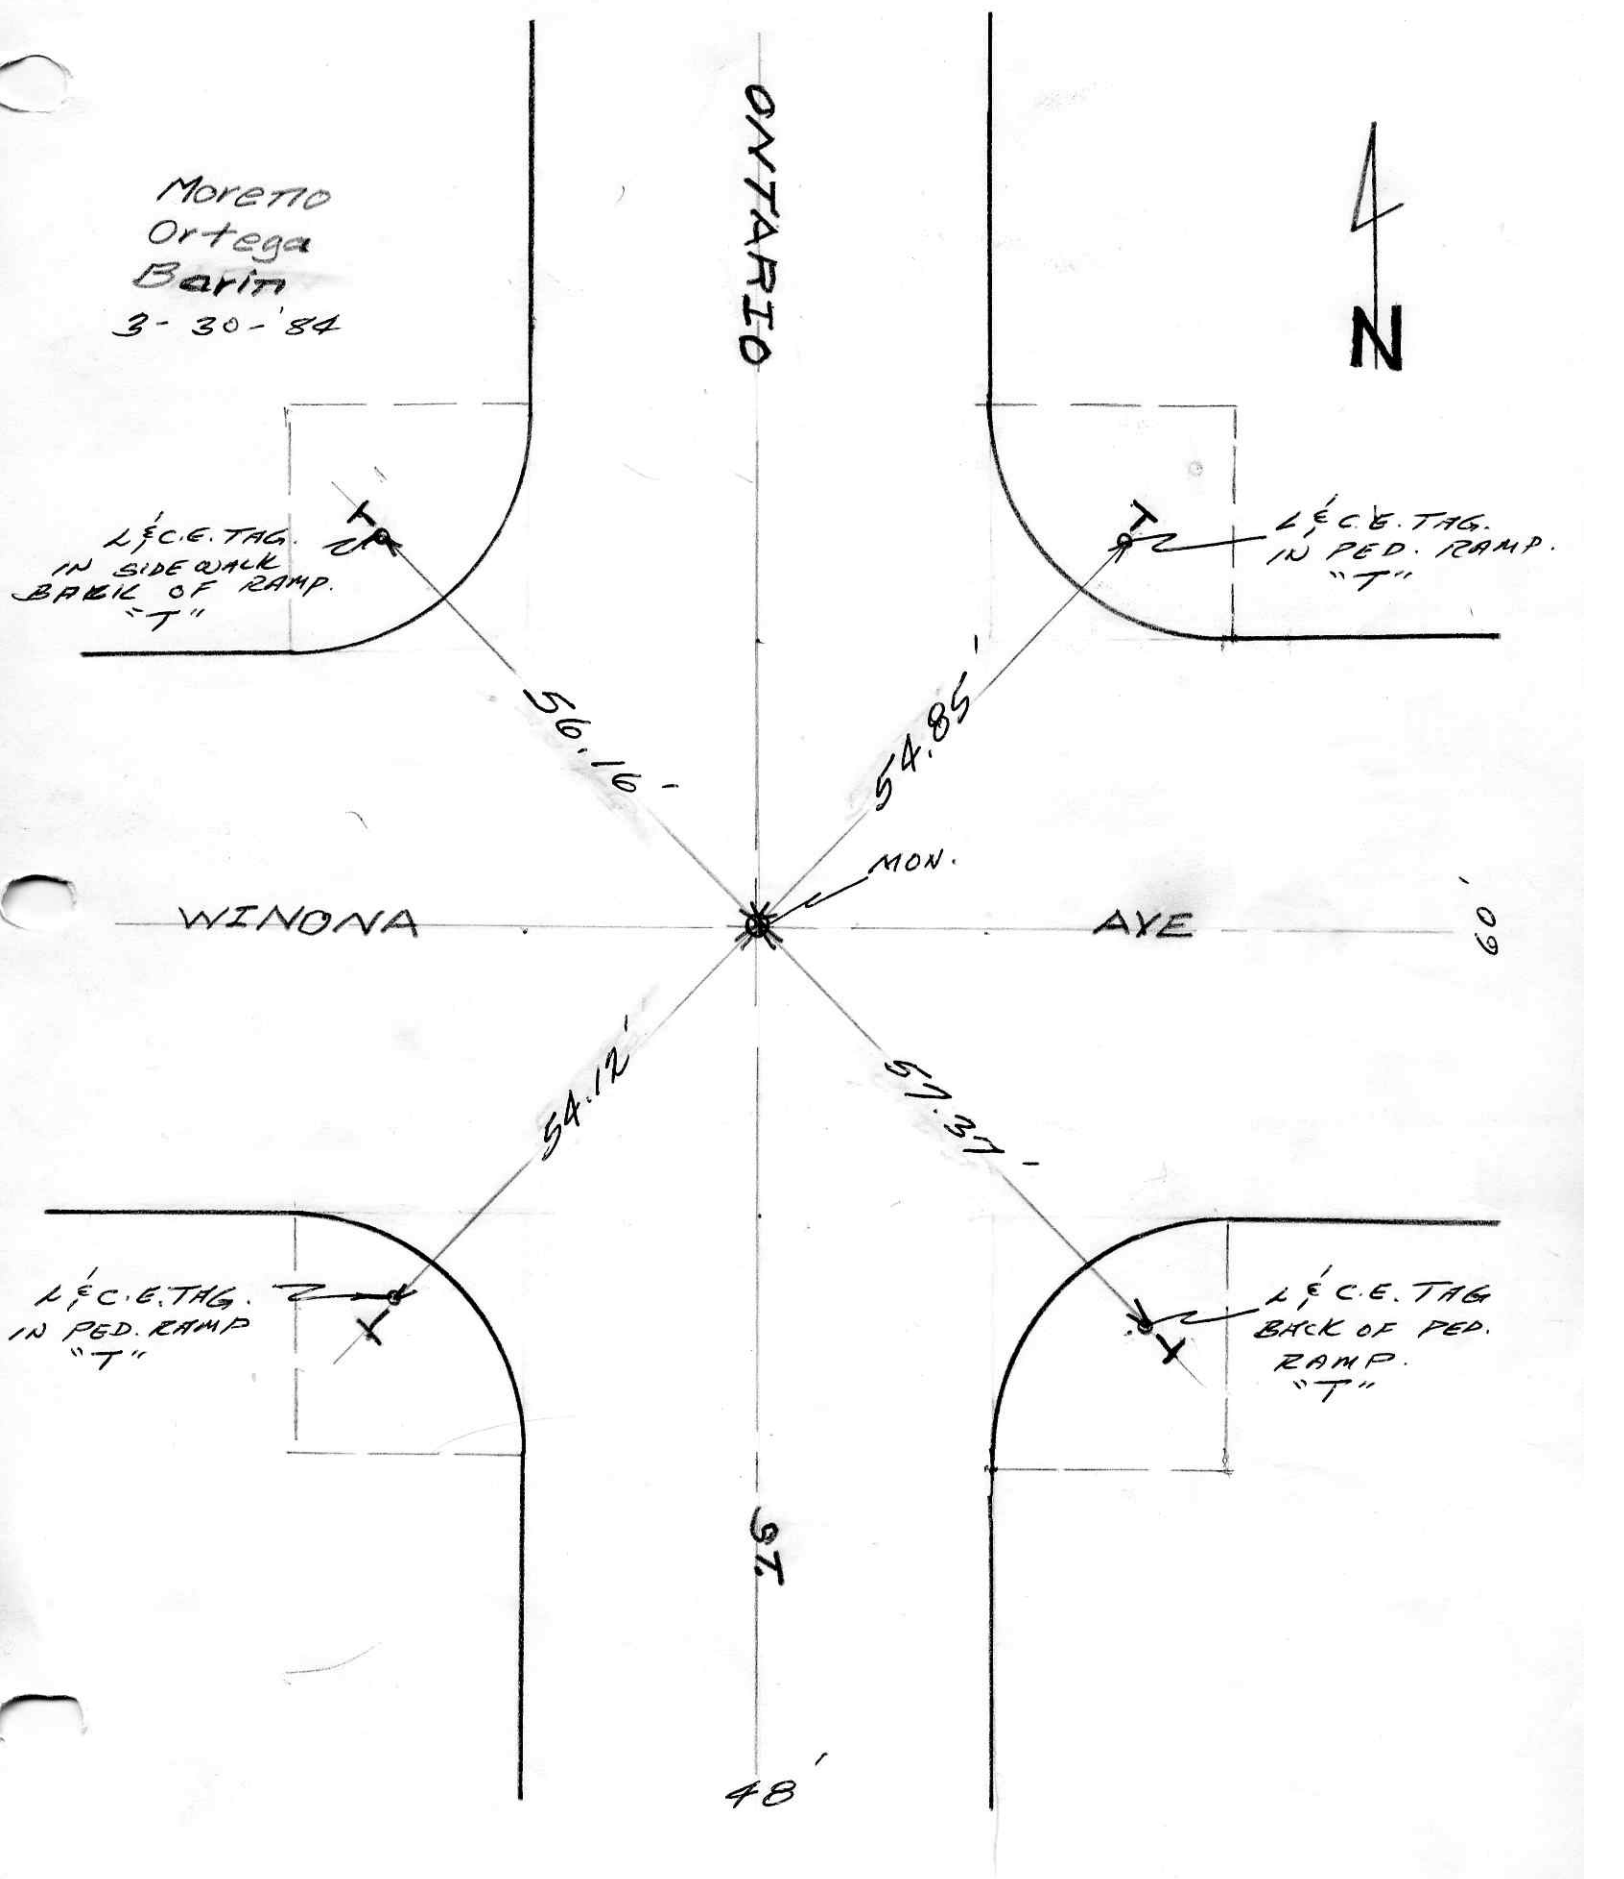 ONTARIO
Moreno
Ortega
Barin
3-30-'84
N
T
T
L & C.E. TAG.
IN SIDEWALK
BACK OF RAMP.
"T"
L & C.E. TAG.
IN PED. RAMP.
"T"
56.16'
54.85'
MON.
WINONA
AVE
60'
54.12'
57.37'
L & C.E. TAG.
IN PED. RAMP
"T"
T
L & C.E. TAG
BACK OF PED.
RAMP.
"T"
T
ST.
48'